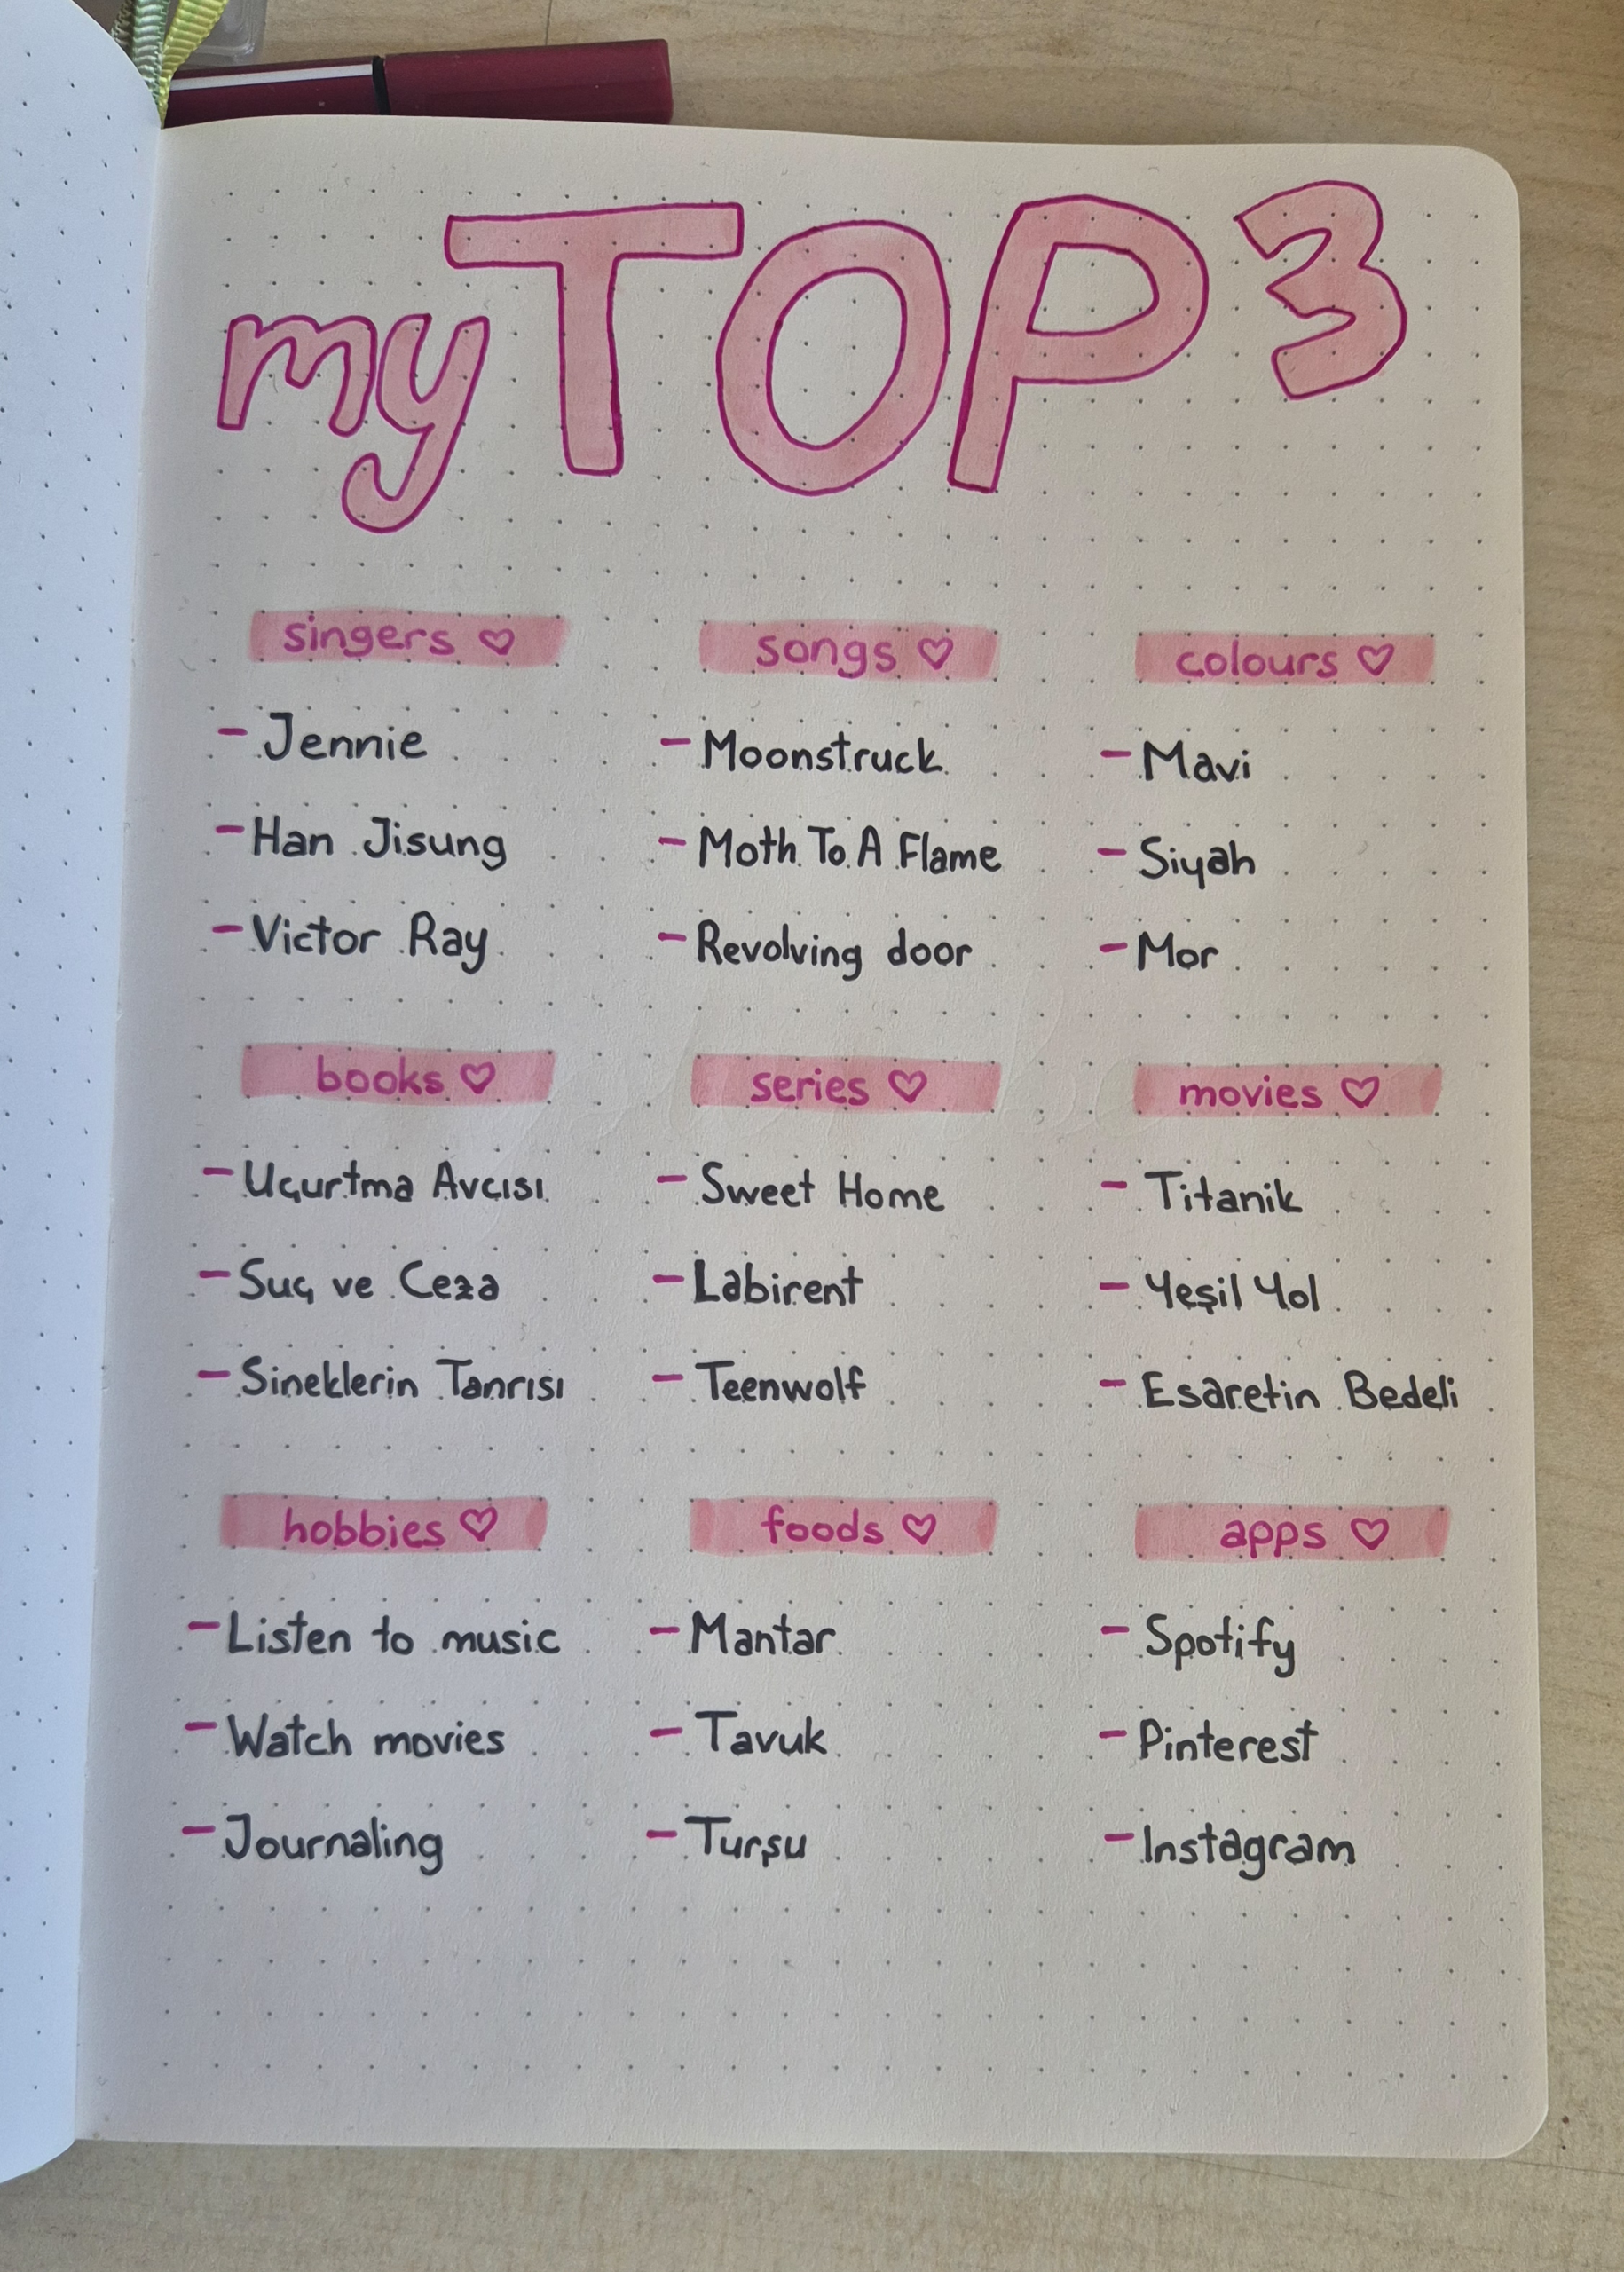 my TOP 3
singers ♡
- Jennie
- Han Jisung
- Victor Ray
songs ♡
- Moonstruck
- Moth To A Flame
- Revolving door
colours ♡
- Mavi
- Siyah
- Mor
books ♡
- Uçurtma Avcısı
- Suç ve Ceza
- Sineklerin Tanrısı
series ♡
- Sweet Home
- Labirent
- Teenwolf
movies ♡
- Titanik
- Yeşil Yol
- Esaretin Bedeli
hobbies ♡
- Listen to music
- Watch movies
- Journaling
foods ♡
- Mantar
- Tavuk
- Turşu
apps ♡
- Spotify
- Pinterest
- Instagram